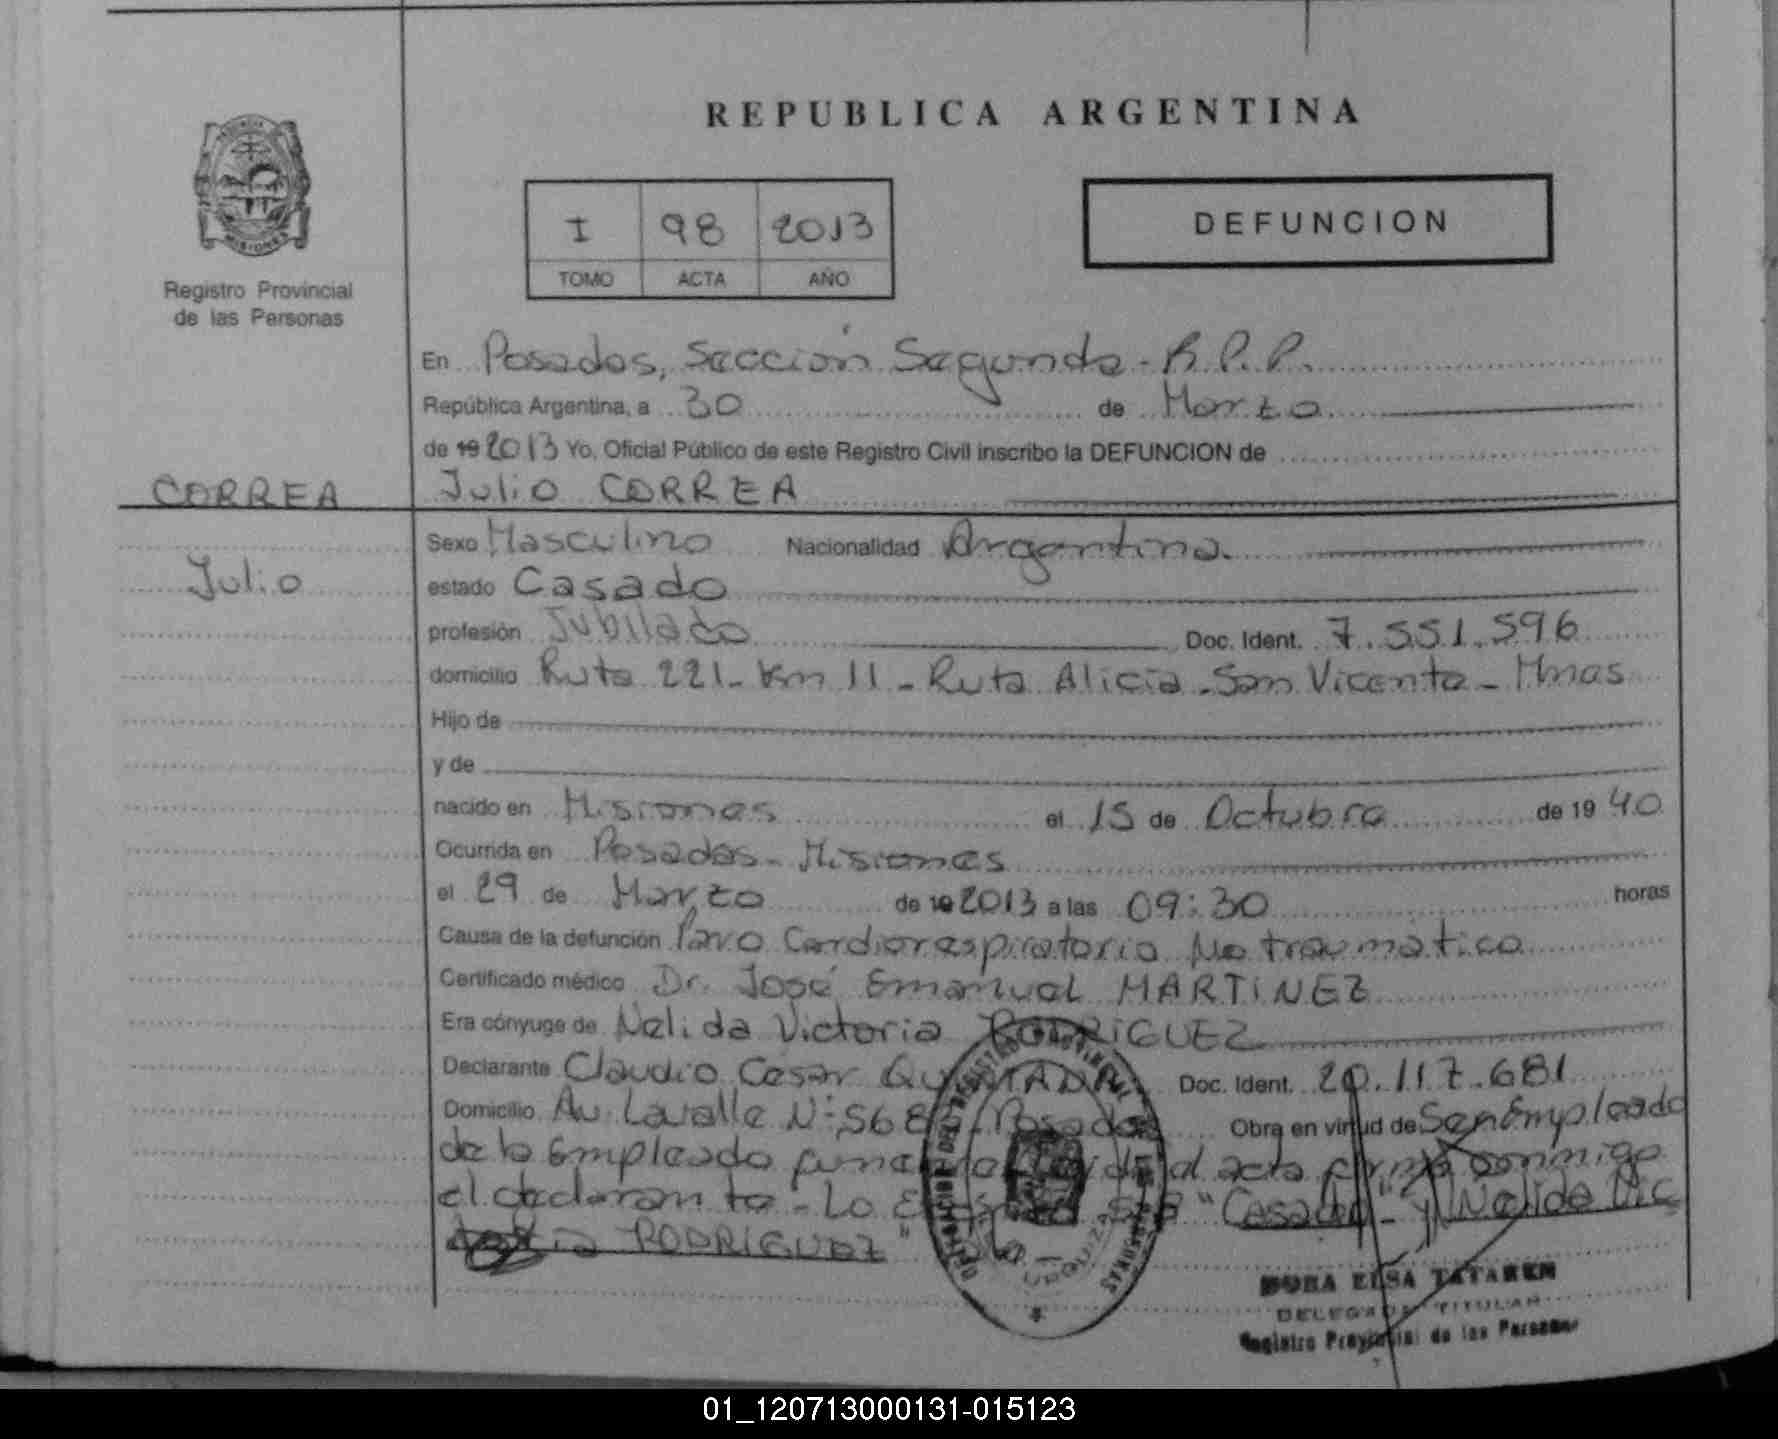 REPUBLICA ARGENTINA
I 98 2013
TOMO ACTA AÑO
DEFUNCION
MISIONES
Registro Provincial
de las Personas
En Posadas, Sección Segunda - R.P.P.
República Argentina, a 30 de Marzo
de 19 2013 Yo, Oficial Público de este Registro Civil inscribo la DEFUNCION de
CORREA
Julio CORREA
Julio
Sexo Masculino Nacionalidad Argentina.
estado Casado
profesión Jubilado Doc. Ident. 7.551.596
domicilio Ruta 221 - Km 11 - Ruta Alicia - San Vicente - Mnes
Hijo de
y de
nacido en Misiones el 15 de Octubre de 19 40
Ocurrida en Posadas - Misiones
el 29 de Marzo de 19 2013 a las 09:30 horas
Causa de la defunción Paro Cardiorespiratorio No traumatico
Certificado médico Dr. José Emanuel MARTINEZ
Era cónyuge de Nelida Victoria RODRIGUEZ
Declarante Claudio Cesar QUINTANA Doc. Ident. 20.117.681
Domicilio Av. Lavalle N° 568 - Posadas Obra en virtud de Ser Empleado
de la Empleado acta firma conmigo
el declarante - Lo "Casado" - y Nelida Vic
RODRIGUEZ"
DORA ELSA TATAREN
DELEGADA TITULAR
Registro Provincial de las Personas
01_120713000131-015123